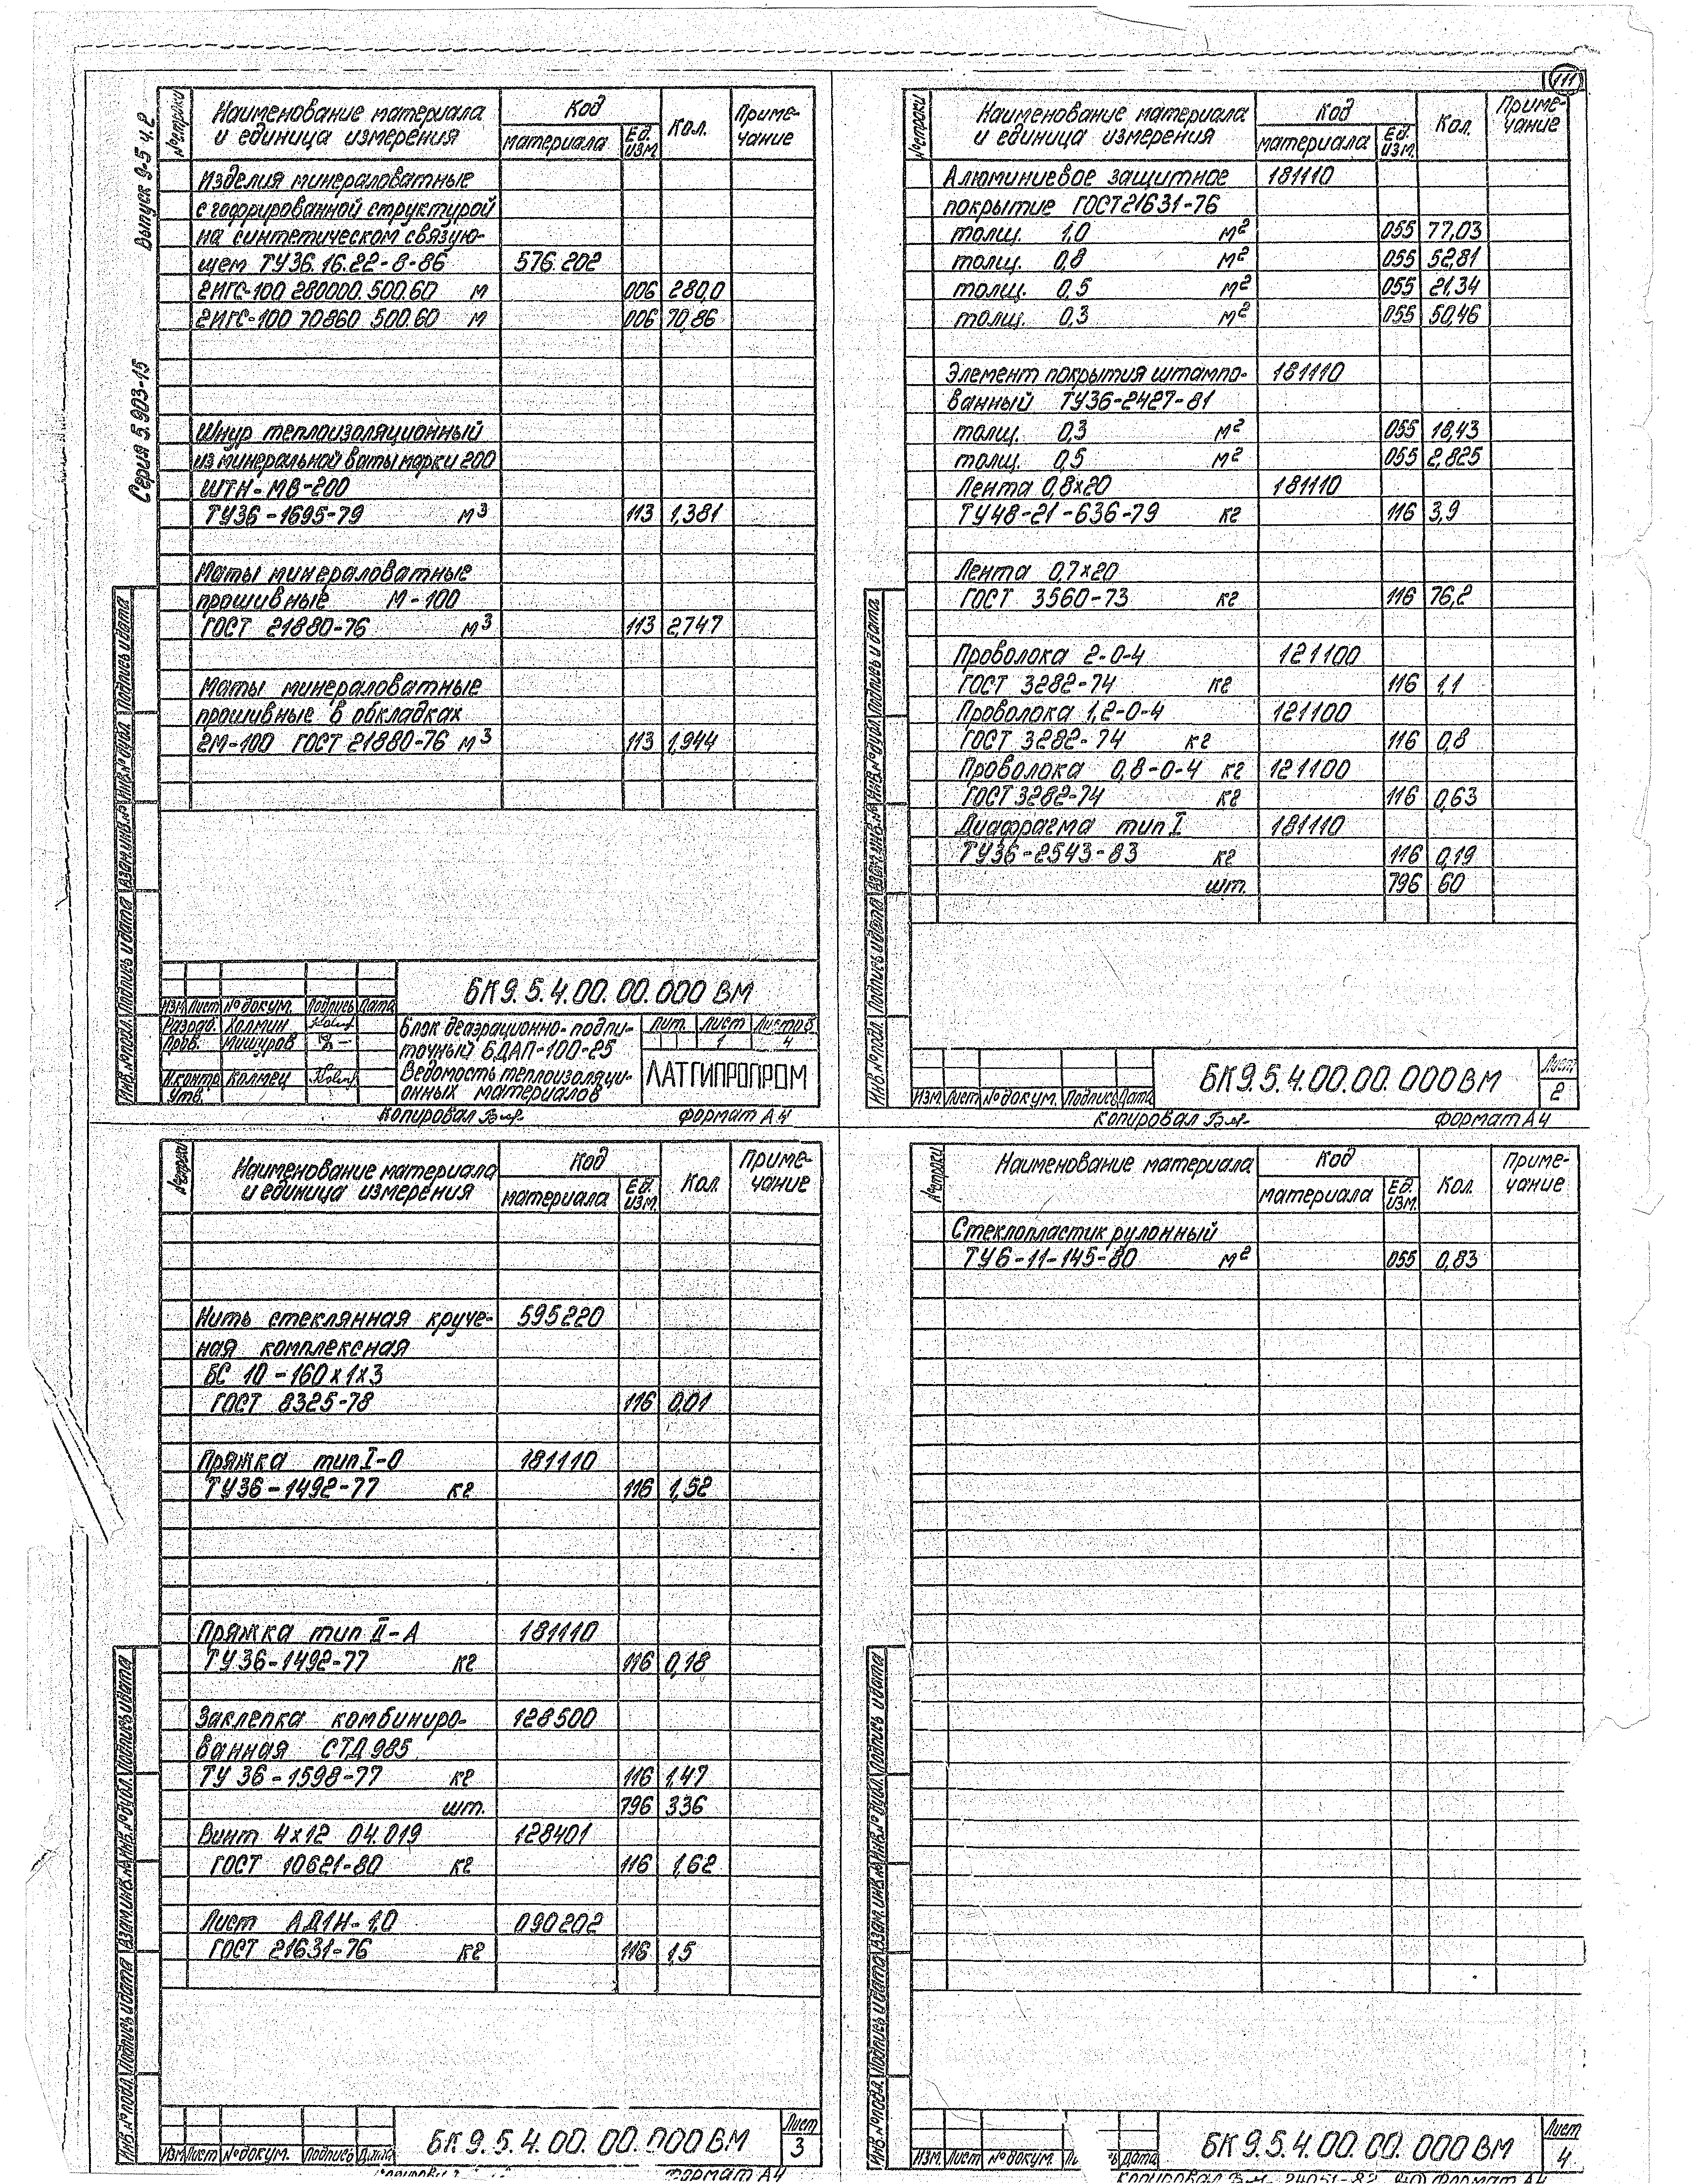 111
Серия 5.903-15 Выпуск 9-5 ч.2
№ строки Наименование материала и единица измерения Код материала Ед. изм. Кол. Приме-чание
Изделия минераловатные
с гофрированной структурой
на синтетическом связую-
щем ТУ36.16.22-8-86 576.202
2ИГС-100 280000.500.60 м 006 280,0
2ИГС-100 70860 500.60 м 006 70,86
Шнур теплоизоляционный
из минеральной ваты марки 200
ШТН-МВ-200
ТУ36-1695-79 м3 113 1,381
Маты минераловатные
прошивные М-100
ГОСТ 21880-76 м3 113 2,747
Маты минераловатные
прошивные в обкладках
2М-100 ГОСТ 21880-76 м3 113 1,944
Инв.№подл. Подпись и дата Взам.инв.№ Инв.№дубл. Подпись и дата
БК9.5.4.00.00.000 ВМ
Изм. Лист № докум. Подпись Дата
Разраб. Холмин
Пров. Мишуров
Н.контр. Колмец
Утв.
Блок деаэрационно-подпи-
точный БДАП-100-25
Ведомость теплоизоляци-
онных материалов
Лит. Лист Листов
1 4
ЛАТГИПРОПРОМ
Копировал Формат А4
№ строки Наименование материала и единица измерения Код материала Ед. изм. Кол. Приме-чание
Алюминиевое защитное 181110
покрытие ГОСТ 21631-76
толщ. 1,0 м2 055 77,03
толщ. 0,8 м2 055 52,81
толщ. 0,5 м2 055 21,34
толщ. 0,3 м2 055 50,46
Элемент покрытия штампо- 181110
ванный ТУ36-2427-81
толщ. 0,3 м2 055 18,43
толщ. 0,5 м2 055 2,825
Лента 0,8х20 181110
ТУ48-21-636-79 кг 116 3,9
Лента 0,7х20
ГОСТ 3560-73 кг 116 76,2
Проволока 2-0-4 121100
ГОСТ 3282-74 кг 116 1,1
Проволока 1,2-0-4 121100
ГОСТ 3282-74 кг 116 0,8
Проволока 0,8-0-4 кг 121100
ГОСТ 3282-74 кг 116 0,63
Диафрагма тип I 181110
ТУ36-2543-83 кг 116 0,19
шт. 796 60
Инв.№подл. Подпись и дата Взам.инв.№ Инв.№дубл. Подпись и дата
Изм. Лист № докум. Подпись Дата
БК9.5.4.00.00.000ВМ
Лист
2
Копировал Формат А4
№ строки Наименование материала и единица измерения Код материала Ед. изм. Кол. Приме-чание
Нить стеклянная круче- 595220
ная комплексная
БС 10-160х1х3
ГОСТ 8325-78 116 0,01
Пряжка тип I-О 181110
ТУ36-1492-77 кг 116 1,52
Пряжка тип II-А 181110
ТУ36-1492-77 кг 116 0,18
Заклепка комбиниро- 128500
ванная СТД 985
ТУ 36-1598-77 кг 116 1,47
шт. 796 336
Винт 4х12 04.019 128401
ГОСТ 10621-80 кг 116 1,62
Лист АД1Н-1,0 090202
ГОСТ 21631-76 кг 116 1,5
Инв.№подл. Подпись и дата Взам.инв.№ Инв.№дубл. Подпись и дата
Изм. Лист № докум. Подпись Дата
БК9.5.4.00.00.000ВМ
Лист
3
Формат А4
№ строки Наименование материала Код материала Ед. изм. Кол. Приме-чание
Стеклопластик рулонный
ТУ6-11-145-80 м2 055 0,83
Инв.№подл. Подпись и дата Взам.инв.№ Инв.№дубл. Подпись и дата
Изм. Лист № докум. Дата
БК9.5.4.00.00.000ВМ
Лист
4
Копировал 24051-82 Формат А4